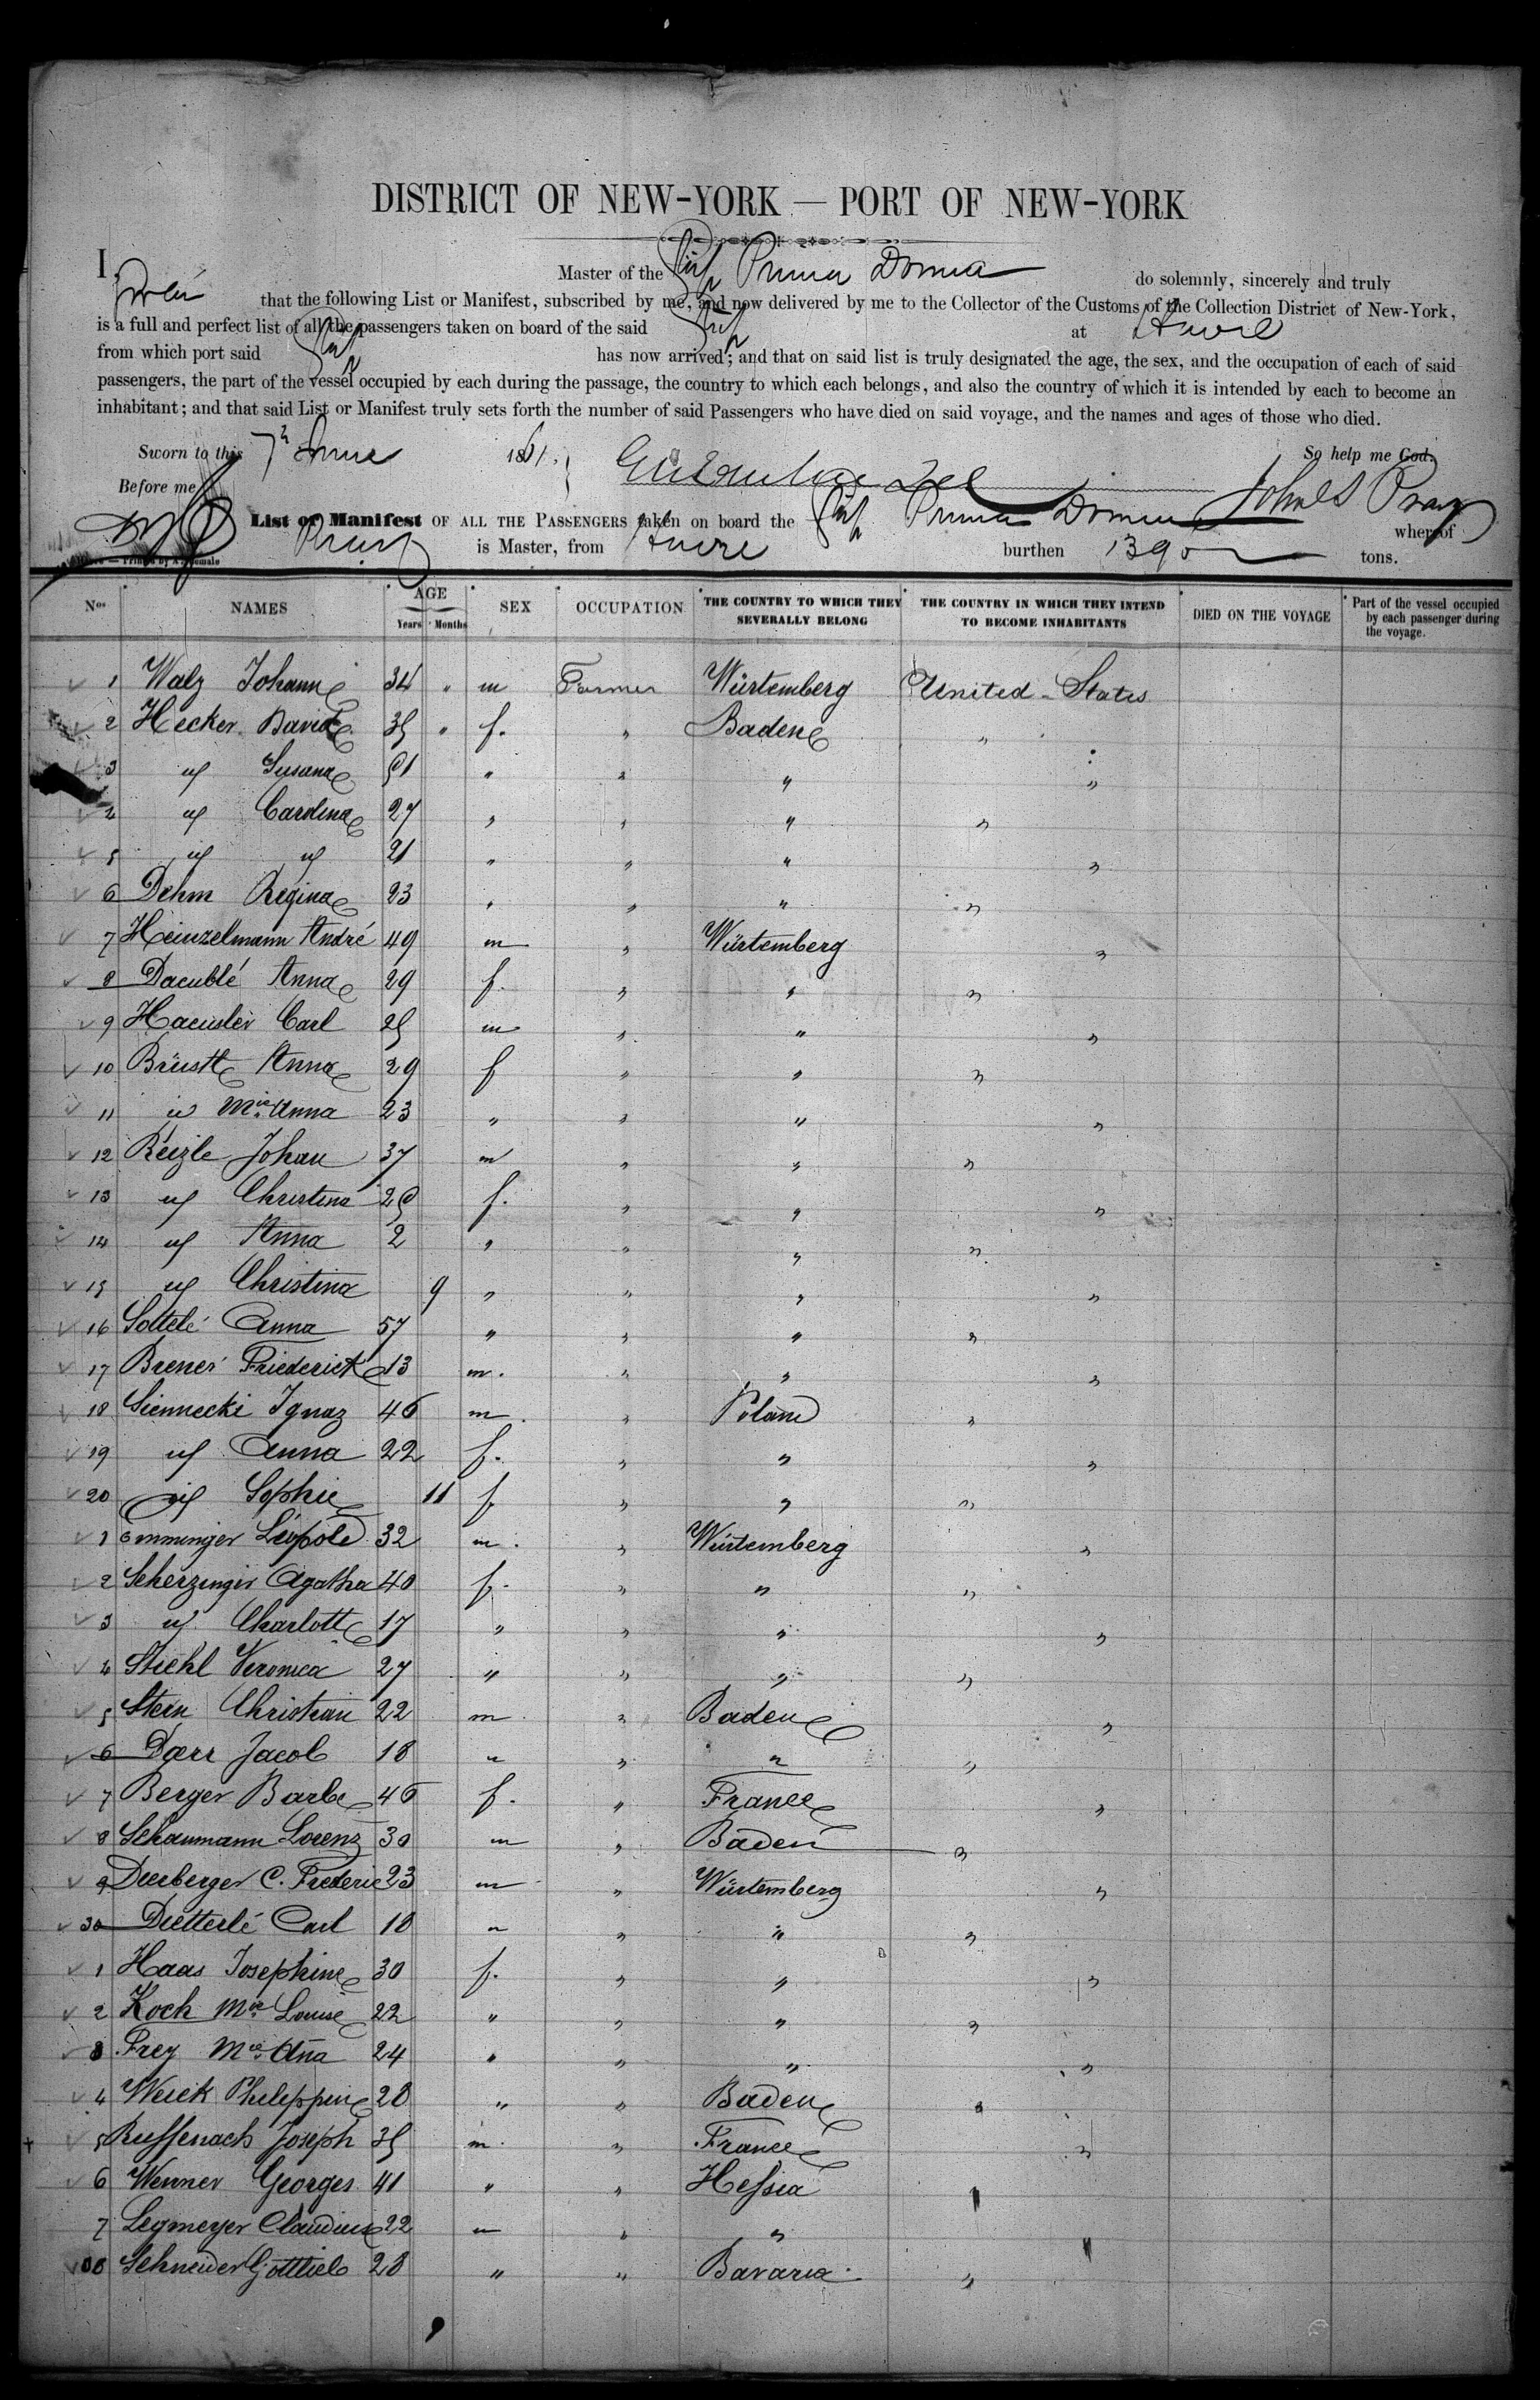 DISTRICT OF NEW-YORK — PORT OF NEW-YORK
I, Master of the Ship Prima Donna do solemnly, sincerely and truly
swear that the following List or Manifest, subscribed by me, and now delivered by me to the Collector of the Customs of the Collection District of New-York,
is a full and perfect list of all the passengers taken on board of the said Ship at Havre
from which port said Ship has now arrived; and that on said list is truly designated the age, the sex, and the occupation of each of said
passengers, the part of the vessel occupied by each during the passage, the country to which each belongs, and also the country of which it is intended by each to become an
inhabitant; and that said List or Manifest truly sets forth the number of said Passengers who have died on said voyage, and the names and ages of those who died.
Sworn to this 7th June 1861. So help me God.
Before me John S Pray
List or Manifest OF ALL THE PASSENGERS taken on board the Ship Prima Donna whereof
Pray is Master, from Havre burthen 1390 tons.
Nos NAMES AGE Years Months SEX OCCUPATION THE COUNTRY TO WHICH THEY SEVERALLY BELONG THE COUNTRY IN WHICH THEY INTEND TO BECOME INHABITANTS DIED ON THE VOYAGE Part of the vessel occupied by each passenger during the voyage.
1 Walz Johann 34 " m Farmer Würtemberg United States
2 Hecker David 35 " f. " Baden "
3 " Susana 51 " " " "
4 " Carolina 27 " " " "
5 " " 21 " " " "
6 Dehm Regina 23 " " " "
7 Heinzelmann André 49 m " Würtemberg "
8 Daeublé Anna 29 f. " " "
9 Haeusler Carl 25 m " " "
10 Brüstle Anna 29 f " " "
11 " Mie Anna 23 " " " "
12 Reizle Johan 37 m " " "
13 " Christina 25 f. " " "
14 " Anna 2 " " " "
15 " Christina 9 " " " "
16 Anna 57 " " " "
17 Brener Friederick 13 m. " " "
18 Siennecki Ignaz 46 m. " Poland "
19 " Anna 22 f. " " "
20 " Sophie 11 f " " "
1 Emminger Léopold 32 m. " Würtemberg "
2 Scherzinger Agatha 40 f. " " "
3 " Charlotte 17 " " " "
4 Stiehl Veronica 27 " " " "
5 Stern Christian 22 m " Baden "
6 Doerr Jacob 18 " " " "
7 Berger Barbe 46 f. " France "
8 Schaumann Lorenz 30 m " Baden "
9 Deerberger C. Frederic 23 m " Würtemberg "
30 Dietterlé Carl 18 " " " "
1 Haas Josephine 30 f. " " "
2 Koch Mie Louise 22 " " " "
3 Frey Mie Ana 24 " " " "
4 Weick Philippine 28 " " Baden "
5 Ruffenach Joseph 35 m. " France "
6 Wenner Georges 41 " " Hessia "
7 Legmeyer Claudius 22 " " " "
38 Schneider Gottlieb 28 " " Bavaria "